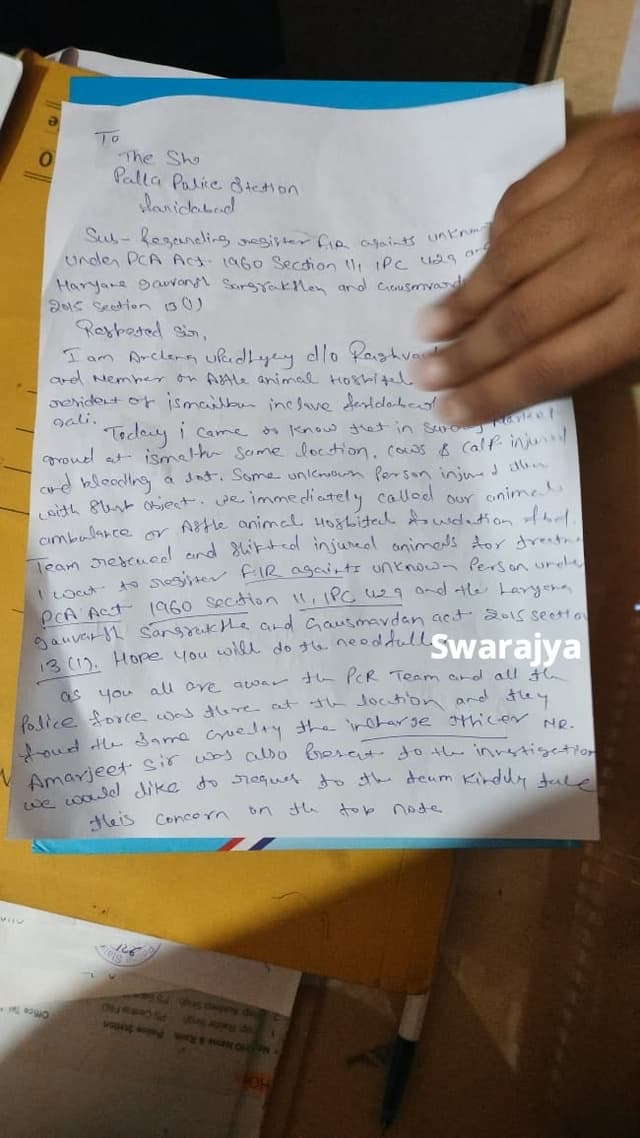 To
The Sho
Palla Police Station
faridabad
Sub- Regarding register FIR againts unknow
under PCA Act- 1960 Section 11, IPC 429 and
Haryana gauvansh Sangrakshan and Gausmvard
2015 Section 13(1)
Respected Sir,
I am Archana uPadhyay d/o Raghva
and Member on Asthe animal Hospital
resident of ismailbur inclave faridabad
gali.
Today i came to know that in Market
groud at ismathur same location, cows & calf injured
and bleeding a lot. Some unknown Person injured
with Blunt object. we immediately called our animal
ambulance or Asthe animal Hospital foundation fbd.
Team rescued and Shifted injured animals for
I want to register FIR againts unknown Person under
PCA Act 1960 section 11, IPC 429 and the haryana
gauvansh Sangraksha and Gausmavdan act 2015 section
13 (1). Hope you will do the needfull.
as you all are awar the PCR Team and all the
Police force was there at the location and they
foud the same cruelty the incharge officer MR.
Amarjeet Sir was also Present to the invistigation
we would like to reques to the team Kindly take
this concern on the top node
Swarajya